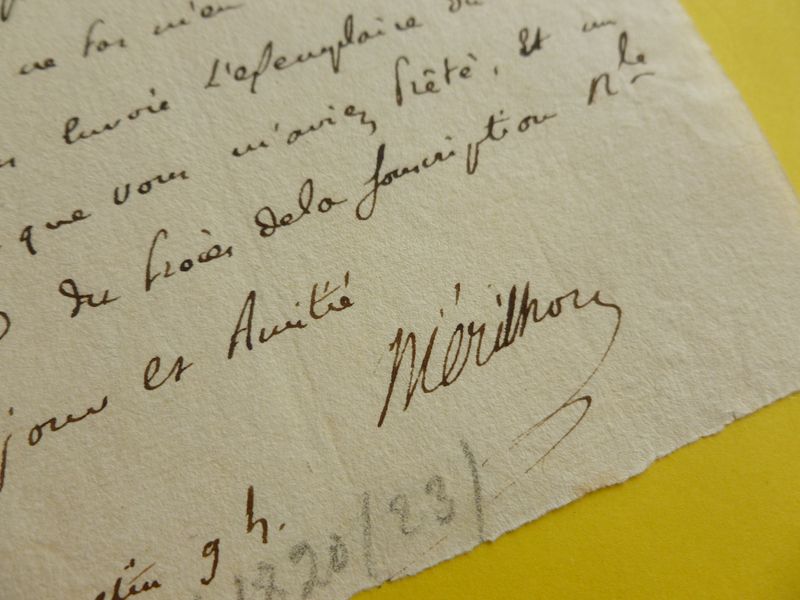 ne m'en
envoie L'exemplaire du
que vous m'aviez Prêté, et un
du Procès dela Souscription Nle
jour et Amitié
Mérilhou
9 h.
1820/23/